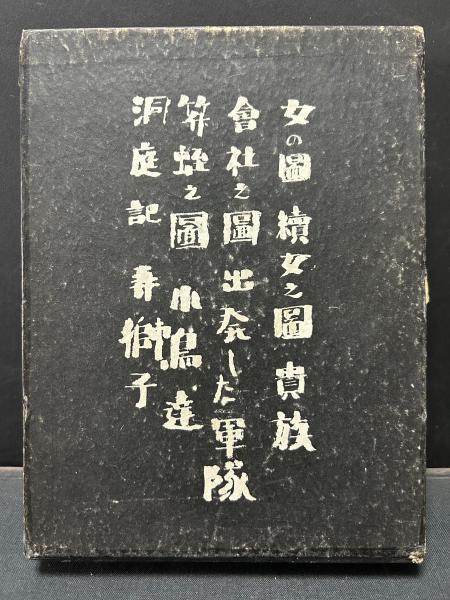 女の圖 續女之圖 貴族
會社之圖 出発した軍隊
笄蛭之圖 小鳥達
洞庭記 弄獅子